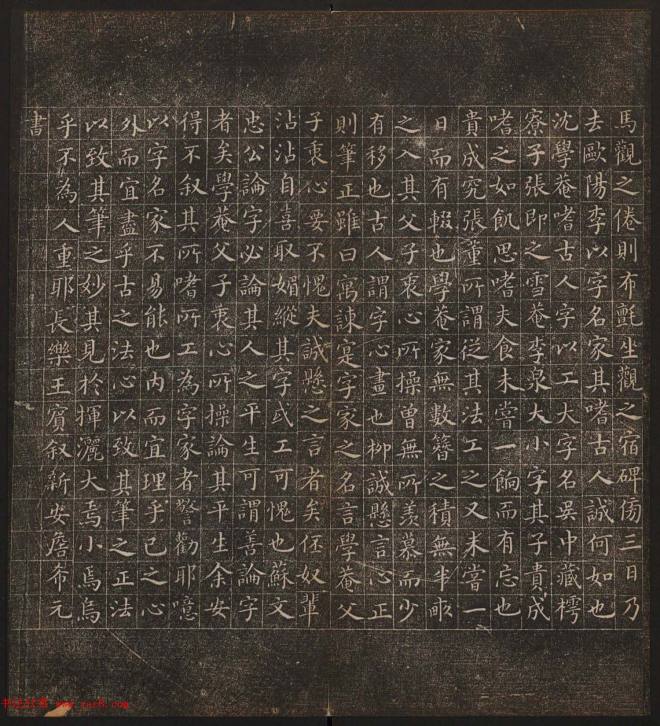 馬觀之倦則布氈坐觀之宿碑傍三日乃
去歐陽李以字名家其嗜古人誠何如也
沈學菴嗜古人字以工大字名吳中藏樗
寮子張即之雪菴李泉大小字其子貴成
嗜之如飢思嗜夫食未嘗一餉而有忘也
貴成究張董所謂從其法工之又未嘗一
日而有輟也學菴家無數簪之積無半畝
之入其父子衷心所操曾無所羨慕而少
有移也古人謂字心畫也柳誠懸言心正
則筆正雖曰寓諫寔字家之名言學菴父
子衷心要不愧夫誠懸之言者矣伾奴輩
沾沾自喜取媚縱其字或工可愧也蘇文
忠公論字必論其人之平生可謂善論字
者矣學菴父子衷心所操論其平生余安
得不叙其所嗜所工為字家者警勸耶噫
以字名家不易能也內而宜理乎己之心
外而宜盡乎古之法心以致其筆之正法
以致其筆之妙其見於揮灑大焉小焉烏
乎不為人重耶長樂王賓叙新安詹希元
書